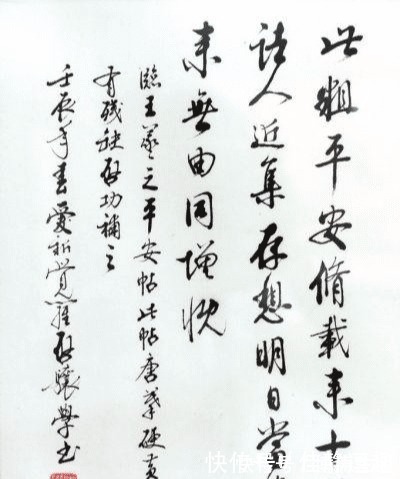 此粗平安脩載来十
諸人近集存想明日當
来無由同增慨
臨王羲之平安帖此帖唐摹硬黄
有残缺啟功補之
壬辰年春愛新覺羅啟驤學书
快传号